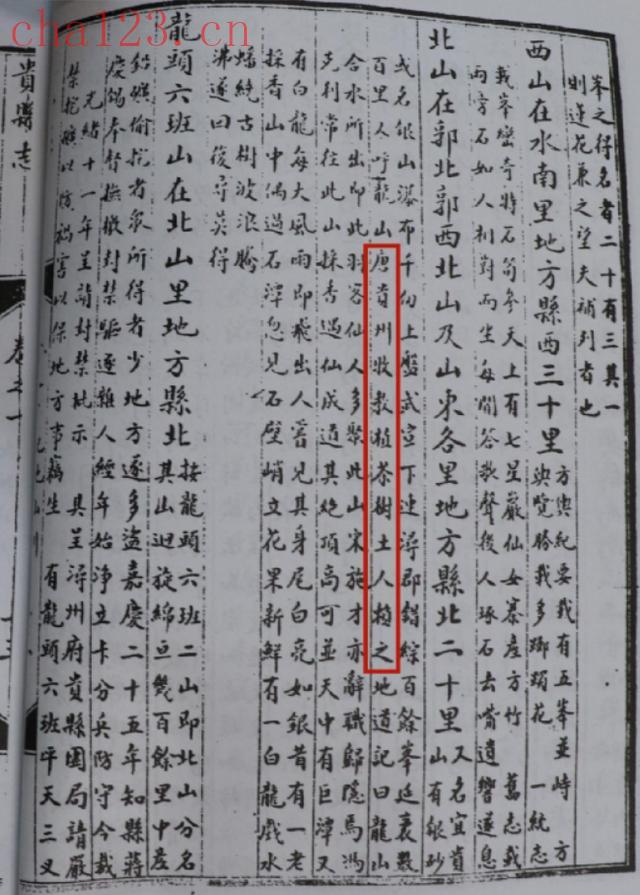 cha123.cn
峯之得名者二十有三其一
則蓮花兼之望夫補列者也
西山在水南里地方縣西三十里
方輿紀要載有五峯並峙 方
輿覽勝載多瑯琅花 一統志
載峯巒奇特石筍參天上有七星巖仙女寨產方竹 舊志載
兩旁石如人對而坐每聞答歌聲後人琢石去嘴遺響遂息
北山在郭北郭西北山及山東各里地方縣北二十里
又名宜貴
山有銀砂
或名銀山瀑布千仞上盤武宣下達潯郡錯綜百餘峯延袤數
百里人呼龍山唐貴州牧教植茶樹土人賴之地道記曰龍山
合水所出即此羽客仙人多聚此山宋施才亦辭職歸隱焉馮
克利常往此山採香遇仙成道其絶頂高可並天中有巨潭又
有白龍每大風雨即飛出人嘗見其身尾白亮如銀昔有一老
採香山中偶過石潭忽見石壁峭立花果新鮮有一白龍戲水
蟠繞古樹波浪騰
沸遂回後尋莫得
龍頭六班山在北山里地方縣北
按龍頭六班二山即北山分名
其山迴旋綿亘幾百餘里中產
鉛礦偷挖者衆所得者少地方逐多盜嘉慶二十五年知縣蔣
慶錫奉督撫檄封禁驅逐雜人經年始淨立卡分兵防守今載
光緒十一年呈請封禁批示 具呈潯州府貴縣團局請嚴
禁挖礦以防禍害以保地方事竊生 有龍頭六班坪天三义
貴縣志
卷之一
十三